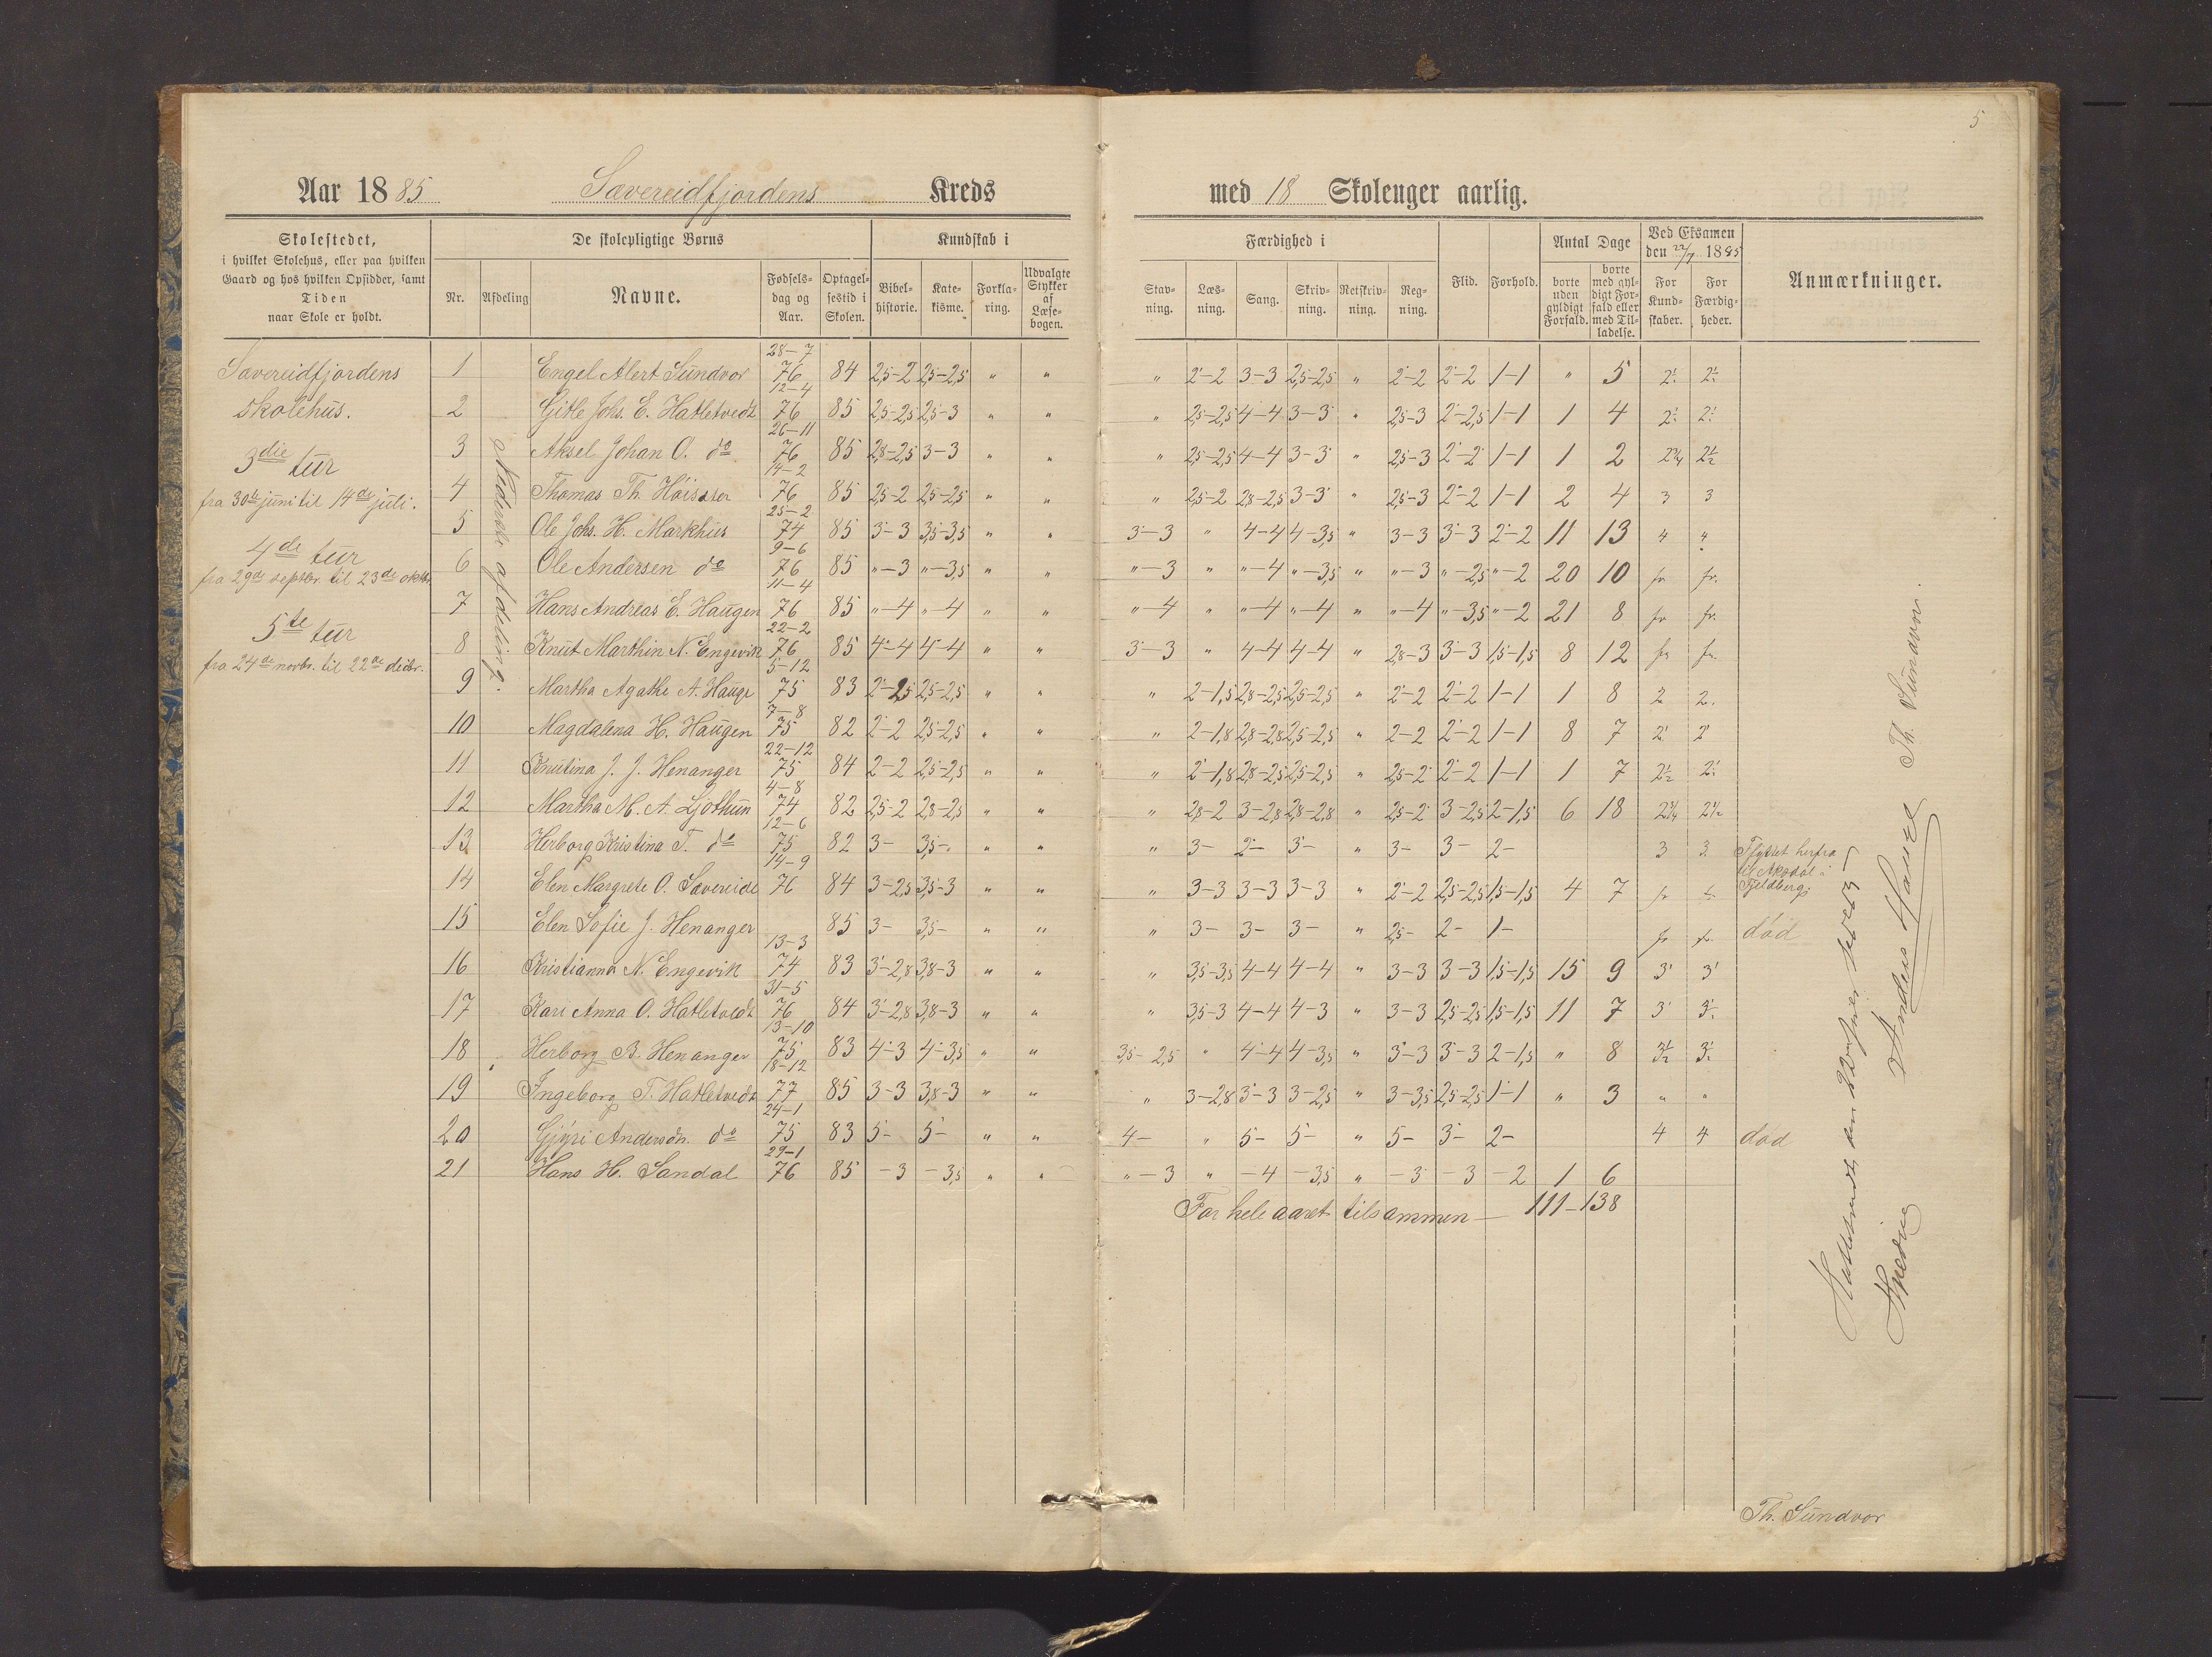 5
Aar 1885 Sævereidfjordens Kreds med 18 Skolenger aarlig.
Skolestedet,
i hvilket Skolehus, eller paa hvilken
Gaard og hos hvilken Opsidder, samt
Tiden
naar Skole er holdt.
De skolepligtige Børns
Nr. Afdeling Navne. Fødselsdag og Aar. Optagelsestid i Skolen.
Kundskab i
Bibelhistorie. Katekisme. Forklaring. Udvalgte Stykker af Læsebogen.
Færdighed i
Stavning. Læsning. Sang. Skrivning. Retskrivning. Regning.
Flid. Forhold.
Antal Dage
borte uden gyldigt Forfald. borte med gyldigt Forfald eller med Tilladelse.
Ved Eksamen den 22/7 1885
For Kundskaber. For Færdigheder.
Anmærkninger.
Sævereidfjordens
skolehus.
3die tur
fra 30te juni til 14de juli.
4de tur
fra 29de septbr. til 23de oktbr.
5te tur
fra 24de novbr. til 22de decbr.
Nederste afdeling.
1 Engel Alert Sundvor 28–7 76 84 2,5–2 2,5–2,5 " " " 2–2 3–3 2,5–2,5 " 2–2 2–2 1–1 " 5
2 Gitle Johs. E. Hatletvedt 12–4 76 85 2,5–2,5 2,5–3 " " " 2,5–2,5 4–4 3–3 " 2,5–3 2–2,5 1–1 1 4
3 Aksel Johan O. do 26–11 76 85 2,8–2,5 3–3 " " " 2,5–2,5 4–4 3–3 " 2,5–3 2–2 1–1 1 2 2¾ 2½
4 Thomas Th. 14–2 76 85 2,5–2 2,5–2,5 " " " 2,5–2 2,8–2,5 3–3 " 2,5–3 2–2 1–1 2 4 3 3
5 Ole Johs. H. Markhus 25–2 74 85 3–3 3,5–3,5 " " 3–3 " 4–4 4–3,5 " 3–3 3–3 2–2 11 13 4 4
6 Ole Andersen do 9–6 76 85 "–3 "–3,5 " " "–3 " "–4 "–3,5 " "–3 "–2,5 "–2 20 10 fr fr.
7 Hans Andreas E. Haugen 11–4 76 85 "–4 "–4 " " "–4 " "–4 "–4 " "–4 "–3,5 "–2 21 8 fr fr.
8 Knut Marthin N. Engevik 22–2 76 85 4–4 4–4 " " 3–3 " 4–4 4–4 " 2,8–3 3–3 1,5–1,5 8 12 fr fr.
9 Martha Agathe A. Hauge 5–12 75 83 2–2,5 2,5–2,5 " " " 2–1,5 2,8–2,5 2,5–2,5 " 2–2 2–2 1–1 1 8 2 2.
10 Magdalena H. Haugen 7–8 75 82 2–2 2,5–2,5 " " " 2–1,8 2,8–2,8 2,5–2,5 " 2–2 2–2 1–1 8 7 2 2
11 Knutina J. J. Henanger 22–12 75 84 2–2 2,5–2,5 " " " 2–1,8 2,8–2,5 2,5–2,5 " 2,5–2 2–2 1–1 1 7 2½
12 Martha M. A. Ljothun 4–8 74 82 2,5–2 2,8–2,5 " " " 2,8–2 3–2,8 2,8–2,8 " 2,5–2 3–2,5 2–1,5 6 18 2¼ 2½
13 Herborg Kristina T. do 12–6 75 82 3– 3,5– " " " 3– 2– 3– " 3– 3– 2– 3 3 Flyttet herfra
til Akødal i
Fjeldberg
14 Elen Margrete O. Sævereide 14–9 76 84 3–2,5 3,5–3 " " " 3–3 3–3 3–3 " 2–2 2,5–2,5 1,5–1,5 4 7 fr fr
15 Elen Sofie J. Henanger 85 3– 3,5– " " " 3– 3– 3– " 2,5– 2– 1– fr fr. død
16 Kristianna N. Engevik 13–3 74 83 3–2,8 3,8–3 " " " 3,5–3,5 4–4 4–4 " 3–3 3–3 1,5–1,5 15 9 3 3
17 Kari Anna O. Hatletvedt 31–5 76 84 3–2,8 3,8–3 " " " 3,5–3 4–4 4–3 " 3–3 2,5–2,5 1,5–1,5 11 7 3
18 Herborg B. Henanger 13–10 75 83 4–3 4–3,5 " " 3,5–2,5 " 4–4 4–3,5 " 3–3 3–3 2–1,5 " 8 3½
19 Ingeborg T. Hatletvedt 18–12 77 85 3–3 3,8–3 " " " 3–2,8 3–3 3–2,5 " 3–3,5 2,5–2,5 1–1 " 3 " "
20 Gjyri Andersdn. do 24–1 75 83 5– 5– " " 4– " 5– 5– " 5– 3– 2– 4 4 død
21 Hans H. Sandal 29–1 76 85 –3 –3,5 " " "–3 " –4 –3,5 " –3 –3 –2 1 6
For hele aaret tilsammen – 111–138
Anders Hauge
Th. Sundvor